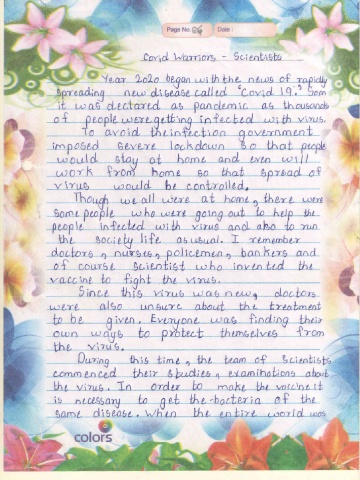 Page No. Date :
Covid Warriors - Scientists
Year 2020 began with the news of rapidly
spreading new disease called "Covid 19." Soon
it was declared as pandemic as thousands
of people were getting infected with virus.
To avoid the infection government
imposed severe lockdown so that people
would stay at home and even will
work from home so that spread of
virus would be controlled.
Though we all were at home, there were
some people who were going out to help the
people infected with virus and also to run
the society life as usual. I remember
doctors, nurses, policemen, bankers and
of course scientist who invented the
vaccine to fight the virus.
Since this virus was new, doctors
were also unsure about the treatment
to be given. Everyone was finding their
own ways to protect themselves from
the virus.
During this time, the team of Scientists
commenced their studies, examinations about
the virus. In order to make the vaccine it
is necessary to get the bacteria of the
same disease. When the entire world was
colors